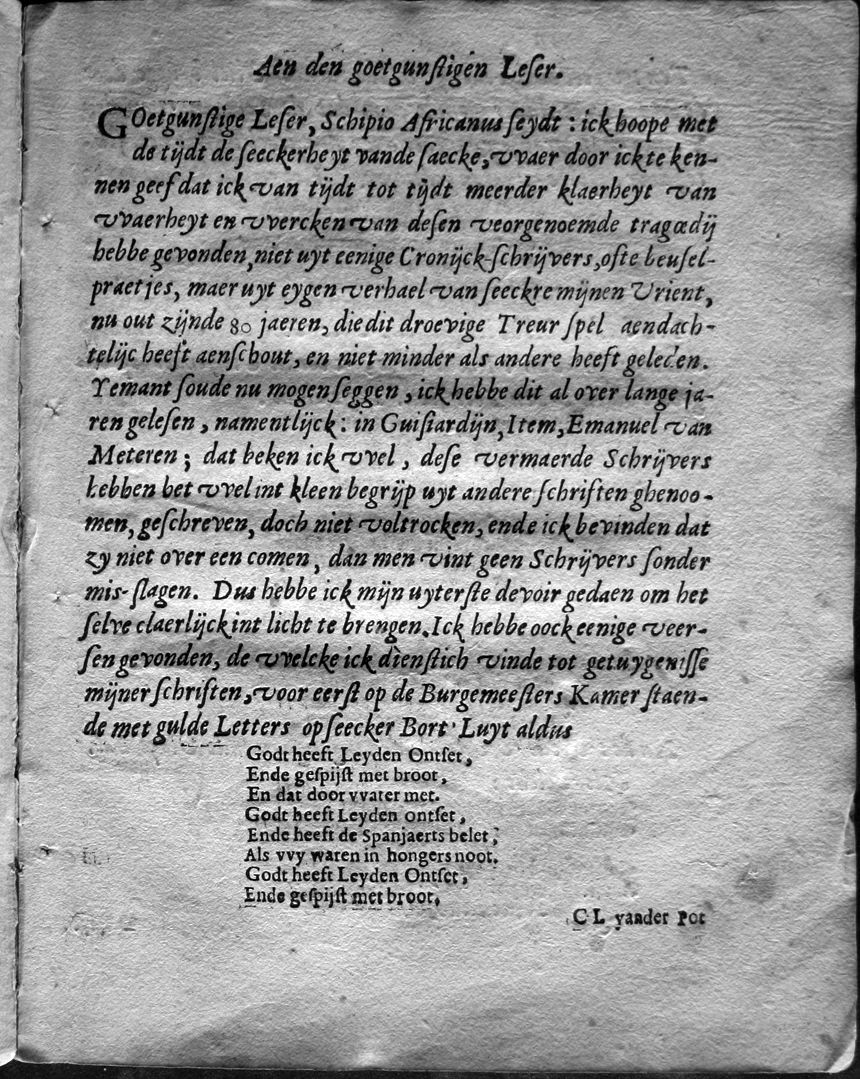 Aen den goetgunſtigen Leſer.
GOetgunſtige Leſer, Schipio Africanus ſeydt : ick hoope met
de tijdt de ſeeckerheyt vande ſaecke, vvaer door ick te ken-
nen geef dat ick van tijdt tot tijdt meerder klaerheyt van
vvaerheyt en vvercken van deſen veorgenoemde tragœdij
hebbe gevonden, niet uyt eenige Cronijck-ſchrijvers, ofte beuſel-
praetjes, maer uyt eygen verhael van ſeeckre mijnen Vrient,
nu out zijnde 80 jaeren, die dit droevige Treur ſpel aendach-
telijc heeft aenſchout, en niet minder als andere heeft geleden.
Yemant ſoude nu mogen ſeggen, ick hebbe dit al over lange ja-
ren geleſen, namentlijck: in Guiſtardijn, Item, Emanuel van
Meteren ; dat beken ick vvel, deſe vermaerde Schrijvers
hebben het vvel int kleen begrijp uyt andere ſchriften ghenoo-
men, geſchreven, doch niet voltrocken, ende ick bevinden dat
zy niet over een comen, dan men vint geen Schrijvers ſonder
mis-ſlagen. Dus hebbe ick mijn uyterſte devoir gedaen om het
ſelve claerlijck int licht te brengen. Ick hebbe oock eenige veer-
ſen gevonden, de vvelcke ick dienſtich vinde tot getuygeniſſe
mijner ſchriften, voor eerſt op de Burgemeeſters Kamer ſtaen-
de met gulde Letters op ſeecker Bort Luyt aldus
Godt heeft Leyden Ontſet,
Ende geſpijſt met broot,
En dat door vvater met.
Godt heeft Leyden ontſet,
Ende heeft de Spanjaerts belet,
Als vvy waren in hongers noot.
Godt heeft Leyden Ontſet,
Ende geſpijſt met broot.
C L vander Pot